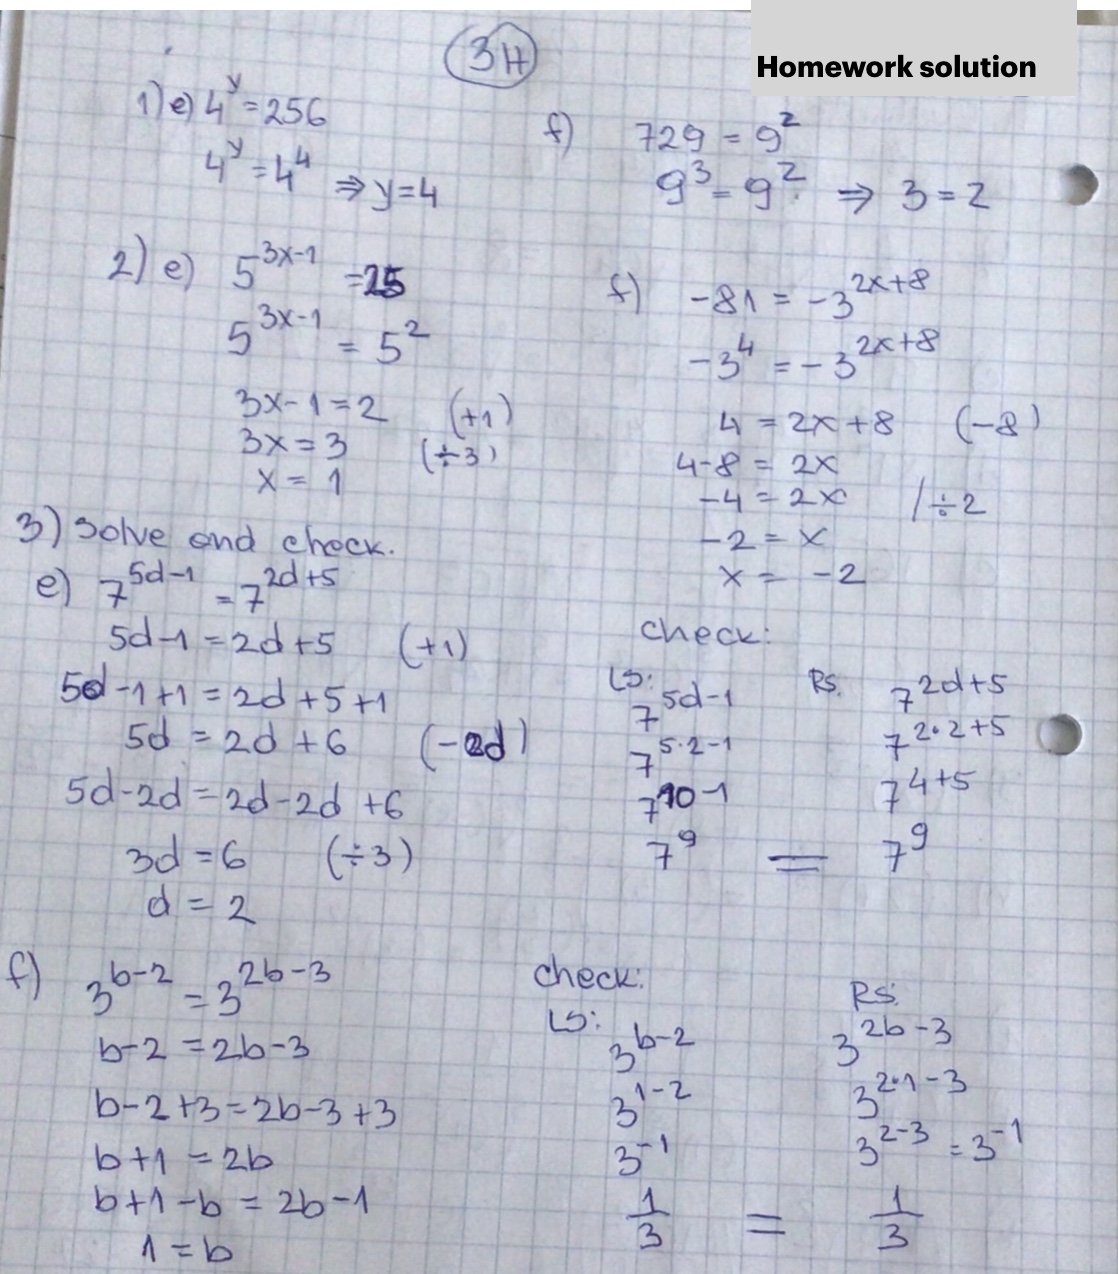 3H
Homework solution
1) e) 4^y = 256
4^y = 4^4 ⇒ y = 4
f) 729 = 9^z
9^3 = 9^z ⇒ 3 = z
2) e) 5^(3x-1) = 25
5^(3x-1) = 5^2
3x-1 = 2 (+1)
3x = 3 (÷3)
x = 1
f) -81 = -3^(2x+8)
-3^4 = -3^(2x+8)
4 = 2x+8 (-8)
4-8 = 2x
-4 = 2x /÷2
-2 = x
x = -2
3) Solve and check.
e) 7^(5d-1) = 7^(2d+5)
5d-1 = 2d+5 (+1)
5d-1+1 = 2d+5+1
5d = 2d+6 (-2d)
5d-2d = 2d-2d+6
3d = 6 (÷3)
d = 2
check:
LS: 7^(5d-1) RS: 7^(2d+5)
7^(5·2-1) 7^(2·2+5)
7^(10-1) 7^(4+5)
7^9 = 7^9
f) 3^(b-2) = 3^(2b-3)
b-2 = 2b-3
b-2+3 = 2b-3+3
b+1 = 2b
b+1-b = 2b-1
1 = b
check:
LS: 3^(b-2) RS: 3^(2b-3)
3^(1-2) 3^(2·1-3)
3^-1 3^(2-3) = 3^-1
1/3 = 1/3